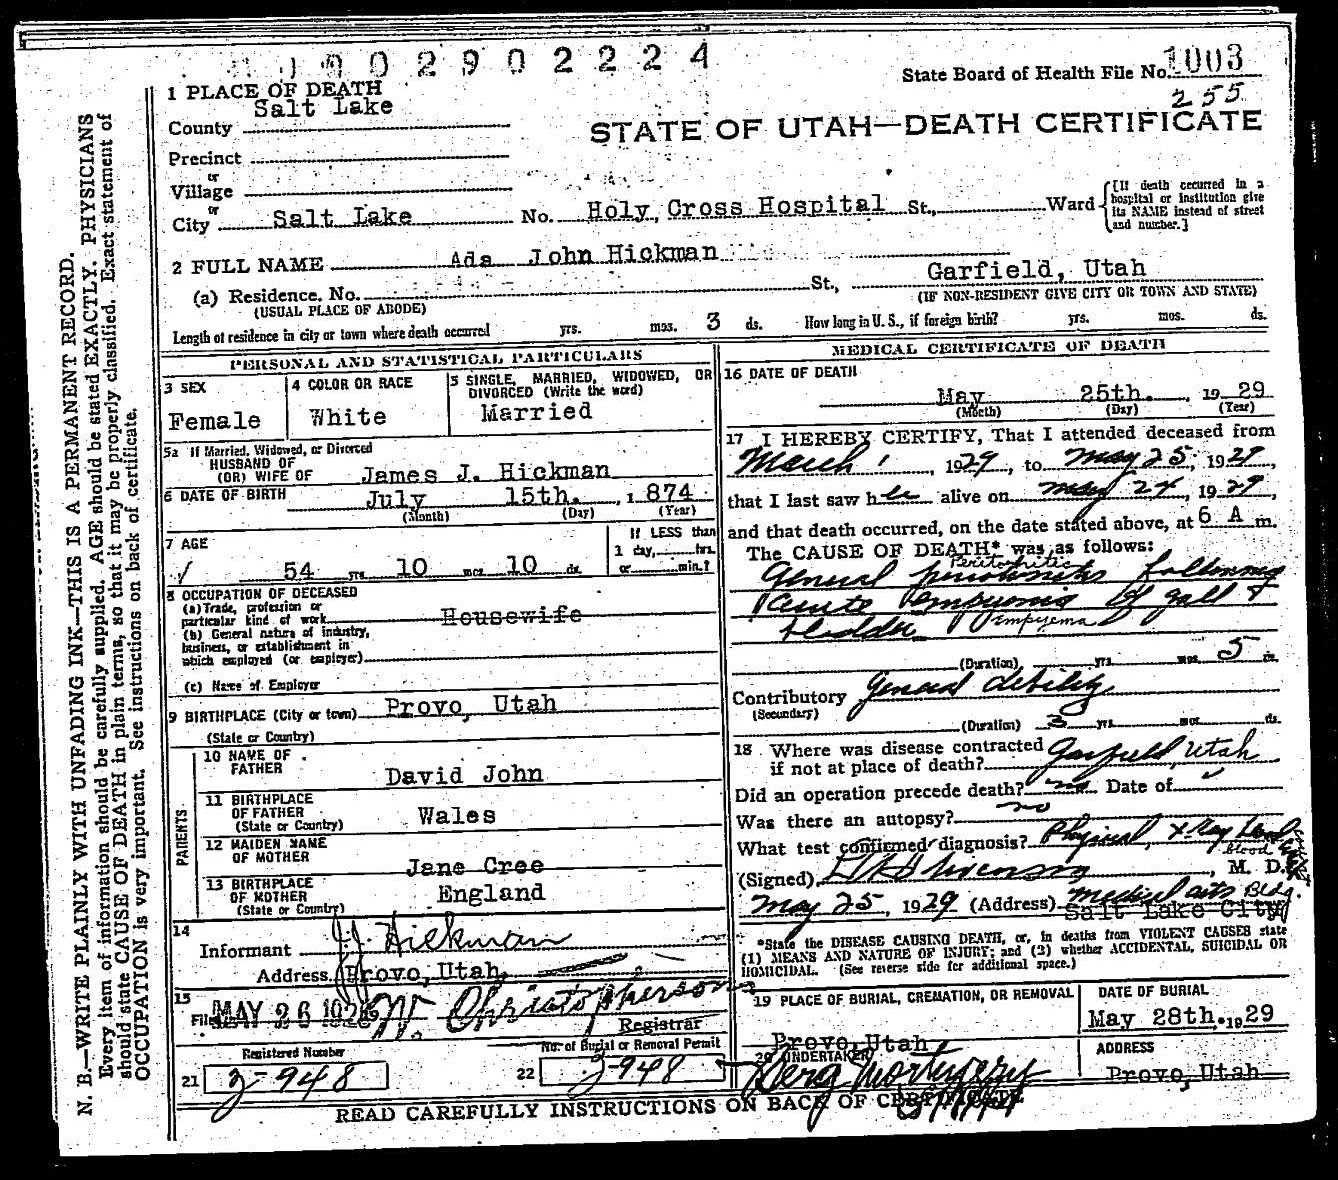 0 0 0 2 9 0 2 2 2 4
State Board of Health File No. 1003
255
1 PLACE OF DEATH
STATE OF UTAH—DEATH CERTIFICATE
County Salt Lake
Precinct
or
Village
or
City Salt Lake No. Holy Cross Hospital St., Ward
[If death occurred in a hospital or institution give its NAME instead of street and number.]
2 FULL NAME Ada John Hickman
(a) Residence. No. St., Garfield, Utah
(USUAL PLACE OF ABODE) (IF NON-RESIDENT GIVE CITY OR TOWN AND STATE)
Length of residence in city or town where death occurred yrs. mos. 3 ds. How long in U. S., if foreign birth? yrs. mos. ds.
PERSONAL AND STATISTICAL PARTICULARS
3 SEX
Female
4 COLOR OR RACE
White
5 SINGLE, MARRIED, WIDOWED, OR
DIVORCED (Write the word)
Married
5a If Married, Widowed, or Divorced
HUSBAND OF
(OR) WIFE OF James J. Hickman
6 DATE OF BIRTH
July 15th. , 1874
(Month) (Day) (Year)
7 AGE
54 yrs. 10 mos. 10 ds.
If LESS than
1 day, hrs.
or min.?
8 OCCUPATION OF DECEASED
(a) Trade, profession or
particular kind of work Housewife
(b) General nature of industry,
business, or establishment in
which employed (or employer)
(c) Name of Employer
9 BIRTHPLACE (City or town) Provo, Utah
(State or Country)
PARENTS
10 NAME OF
FATHER David John
11 BIRTHPLACE
OF FATHER Wales
(State or Country)
12 MAIDEN NAME
OF MOTHER Jane Cree
13 BIRTHPLACE
OF MOTHER England
(State or Country)
14
Informant J J Hickman
Address Provo, Utah
15
Filed MAY 26 1929 W. Christopherson
Registrar
Registered Number
21 2-948
No. of Burial or Removal Permit
22 2-948
MEDICAL CERTIFICATE OF DEATH
16 DATE OF DEATH
May 25th. , 1929
(Month) (Day) (Year)
17 I HEREBY CERTIFY, That I attended deceased from
March 1, 1929, to May 25, 1929,
that I last saw her alive on May 24, 1929,
and that death occurred, on the date stated above, at 6 A m.
The CAUSE OF DEATH* was as follows:
Peritonitis
General peritonitis following
acute empyema of gall
bladder Empyema
(Duration) yrs. mos. 5 ds.
Contributory General debility
(Secondary)
(Duration) 3 yrs. mos. ds.
18 Where was disease contracted
if not at place of death? Garfield, Utah
Did an operation precede death? no Date of
Was there an autopsy? no
What test confirmed diagnosis? Physical, x Ray blood
blood
(Signed) , M. D.
May 25, 1929 (Address) Medical Arts Bldg.
Salt Lake City
*State the DISEASE CAUSING DEATH, or, in deaths from VIOLENT CAUSES state
(1) MEANS AND NATURE OF INJURY; and (2) whether ACCIDENTAL, SUICIDAL OR
HOMICIDAL. (See reverse side for additional space.)
19 PLACE OF BURIAL, CREMATION, OR REMOVAL
Provo, Utah
DATE OF BURIAL
May 28th. 1929
20 UNDERTAKER
Berg Mortuary
ADDRESS
Provo, Utah
READ CAREFULLY INSTRUCTIONS ON BACK OF CERTIFICATE
N. B.—WRITE PLAINLY WITH UNFADING INK—THIS IS A PERMANENT RECORD.
Every item of information should be carefully supplied. AGE should be stated EXACTLY. PHYSICIANS
should state CAUSE OF DEATH in plain terms, so that it may be properly classified. Exact statement of
OCCUPATION is very important. See instructions on back of certificate.